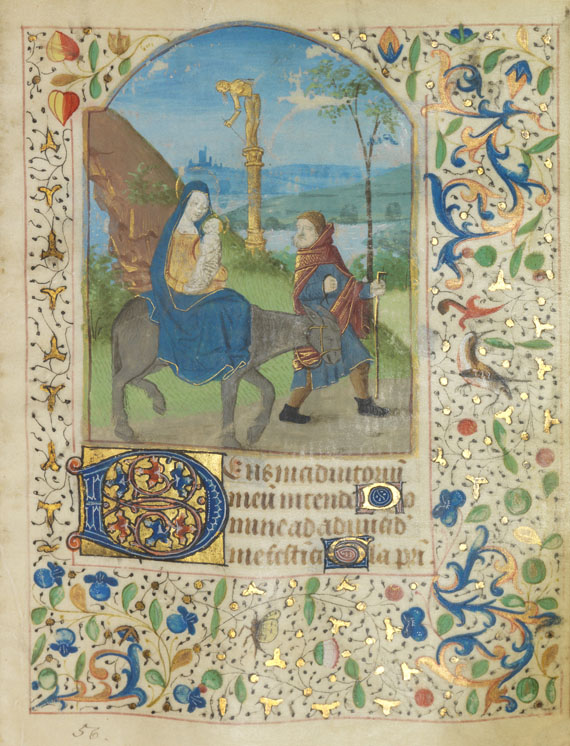 Deus in adiutoriu
meu intende D o
mine ad adiuuad
me festia Gla pri
56.